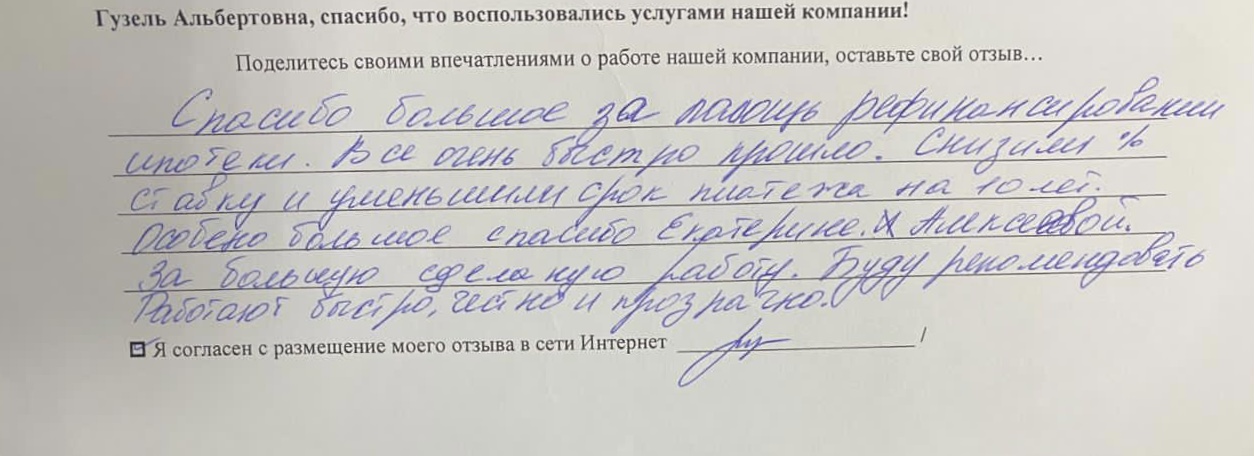 Гузель Альбертовна, спасибо, что воспользовались услугами нашей компании!
Поделитесь своими впечатлениями о работе нашей компании, оставьте свой отзыв…
Спасибо большое за помощь рефинансировании
ипотеки. Все очень быстро прошло. Снизили %
ставку и уменьшили срок платежа на 10 лет.
Особено большое спасибо Екатерине. Алексеевой.
За большую сделаную работу. Буду рекомендовать
Работают быстро, честно и прозрачно.
Я согласен с размещение моего отзыва в сети Интернет /